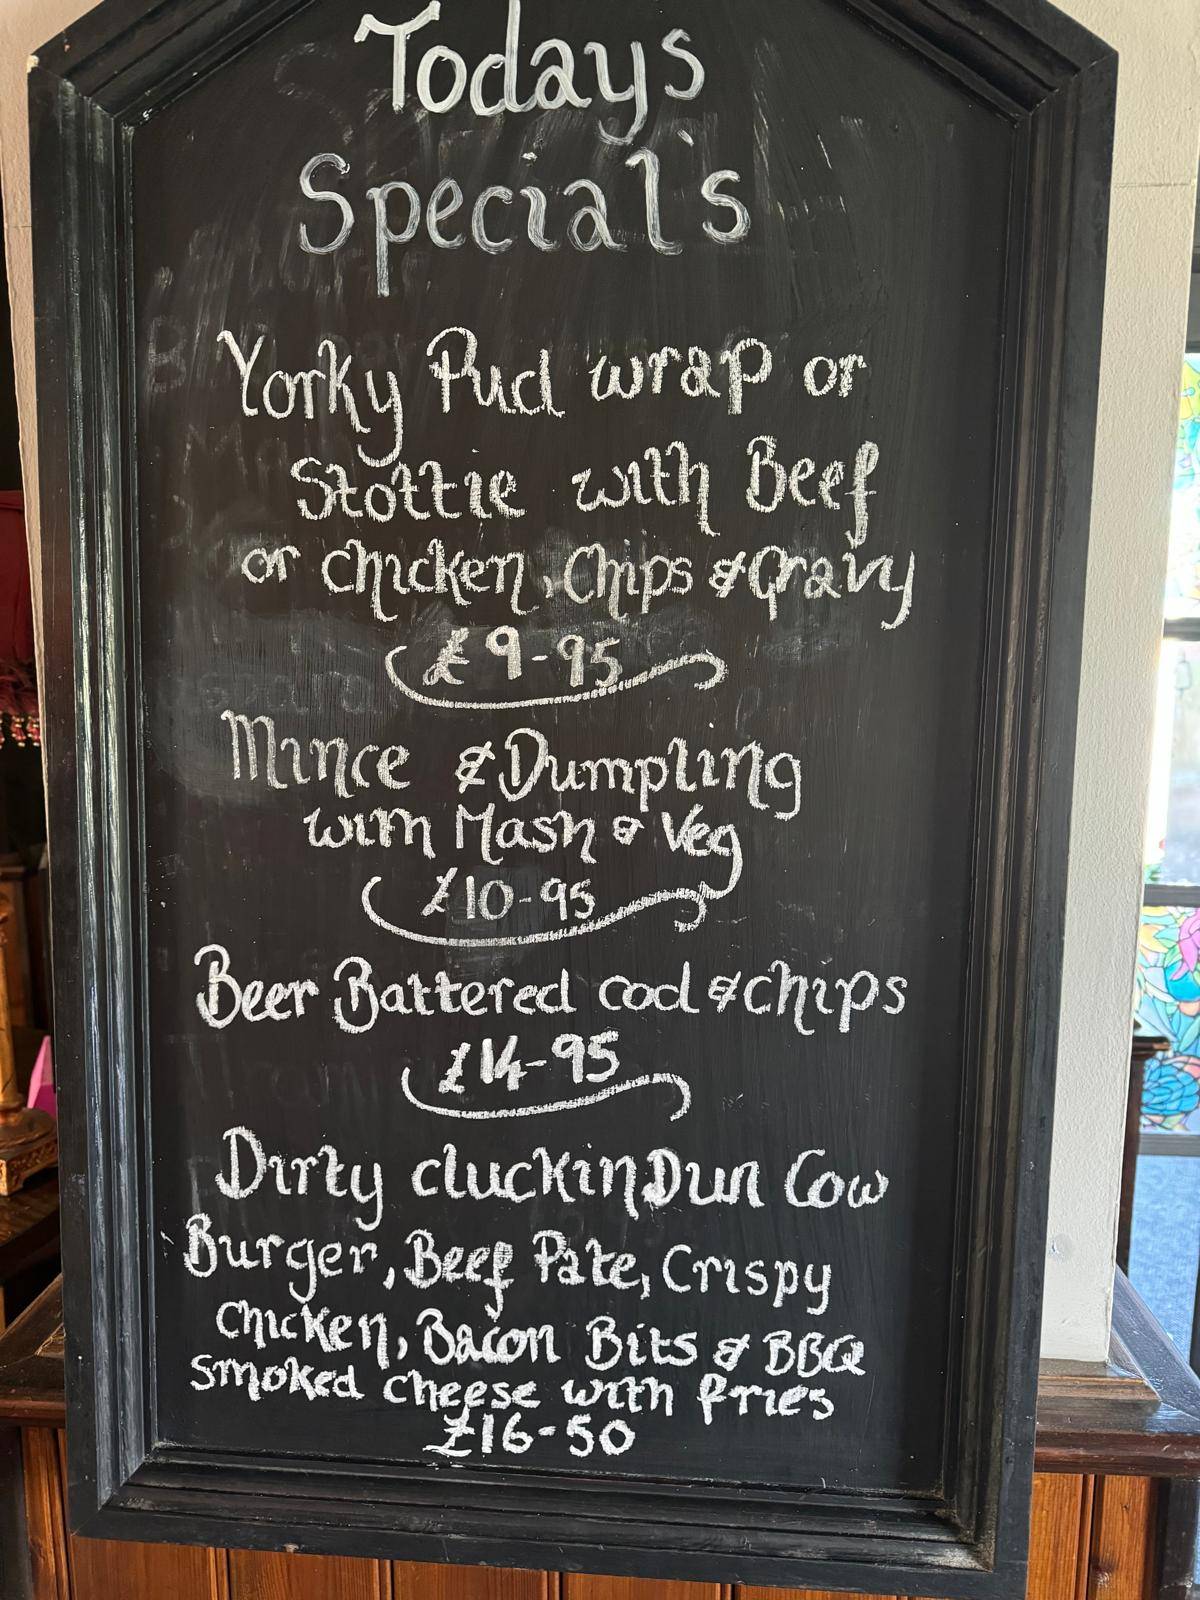 Todays
Special's
Yorky Pud wrap or
Stottie with Beef
or chicken, Chips & Gravy
£9-95
Mince & Dumpling
with Mash & Veg
£10-95
Beer Battered cod & chips
£14-95
Dirty cluckin Dun Cow
Burger, Beef Pate, Crispy
Chicken, Bacon Bits & BBQ
smoked cheese with fries
£16-50